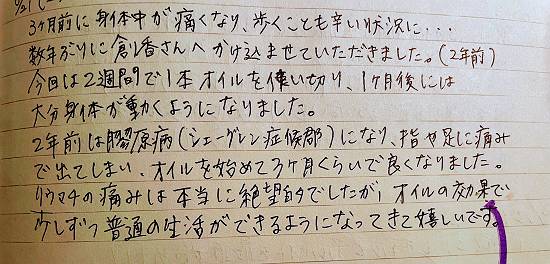 3ヶ月前に身体中が痛くなり、歩くことも辛い状況に・・・
数年ぶりに創香さんへかけ込ませていただきました。(2年前)
今回は2週間で1本オイルを使い切り、1ヶ月後には
大分身体が動くようになりました。
2年前は膠原病(シェーグレン症候郡)になり、指や足に痛み
で出てしまい、オイルを始めて3ヶ月くらいで良くなりました。
リウマチの痛みは本当に絶望的でしたが、オイルの効果で
少しずつ普通の生活ができるようになってきて嬉しいです。